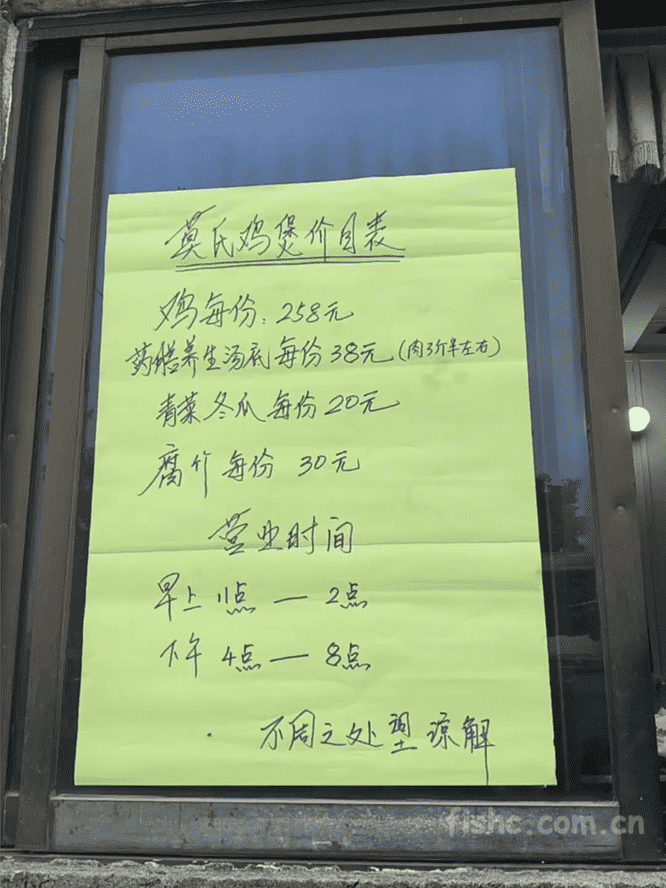 莫氏鸡煲价目表
鸡每份：258元
药膳养生汤底每份38元（肉3斤半左右）
青菜冬瓜每份20元
腐竹每份 30元
营业时间
早上11点 — 2点
下午 4点 — 8点
不周之处望谅解
fishc.com.cn